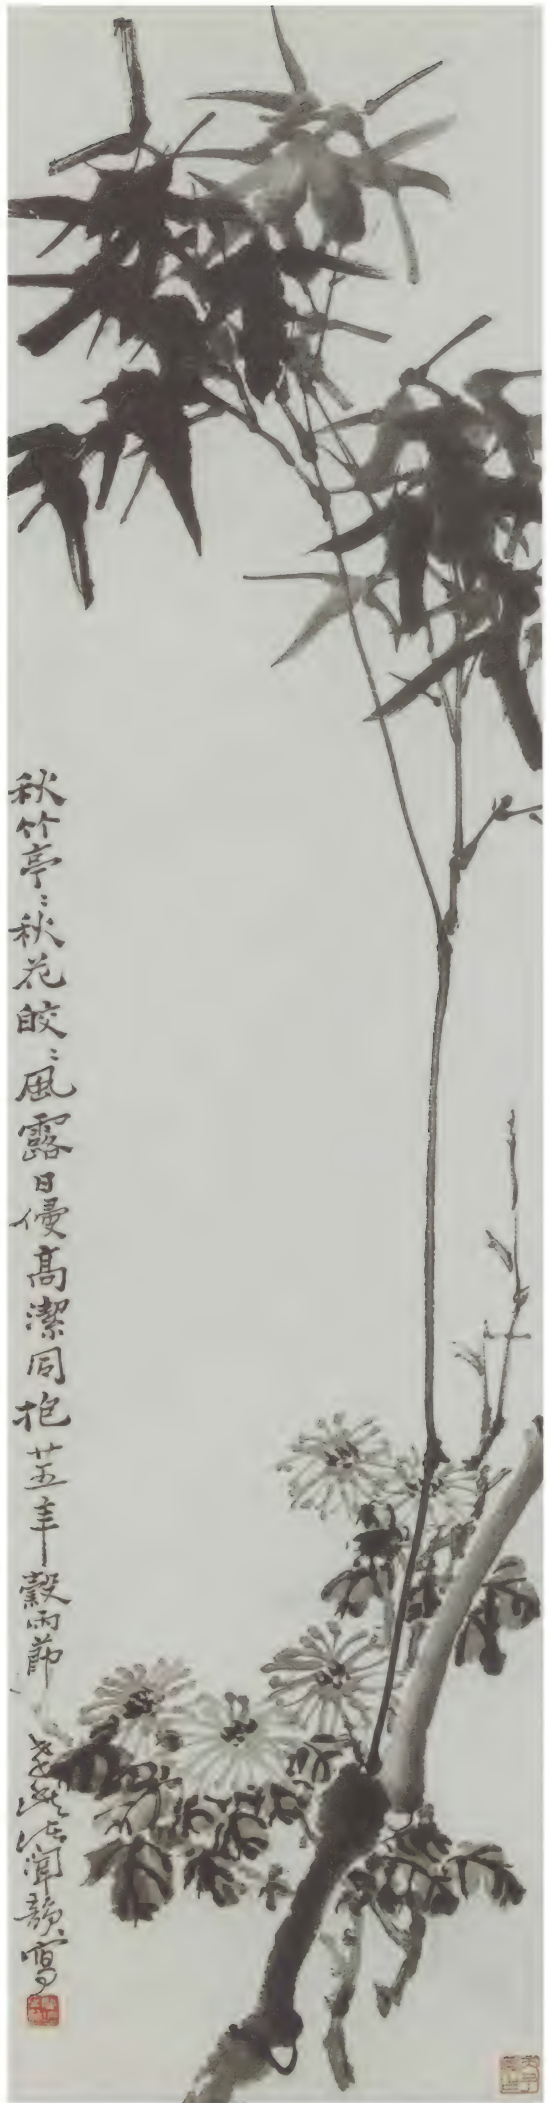 秋竹亭〻秋花皎〻風露日侵高潔同抱廿五年穀雨節
聞韻寫